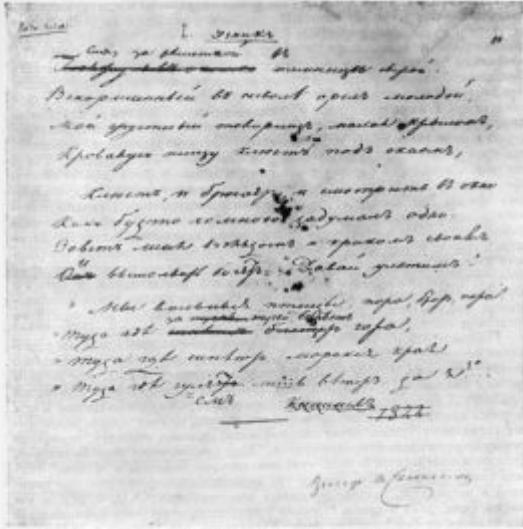 I. Узникъ
Сижу за решеткой въ
темницѣ сырой.
Вскормленный въ неволѣ орелъ молодой,
Мой грустный товарищъ, махая крыломъ,
Кровавую пищу клюетъ подъ окномъ,
Клюетъ, и бросаетъ, и смотритъ въ окно
Какъ будто со мною задумалъ одно.
Зоветъ меня взглядомъ и крикомъ своимъ
И вымолвить Давай улетимъ!
" Мы вольныя птицы, пора, братъ, пора
за тучей бѣлѣетъ
" Туда гдѣ гора,
" Туда гдѣ синѣютъ морскіе края
" Туда гдѣ гуляемъ лишь вѣтръ да я
Кишиневъ
1822